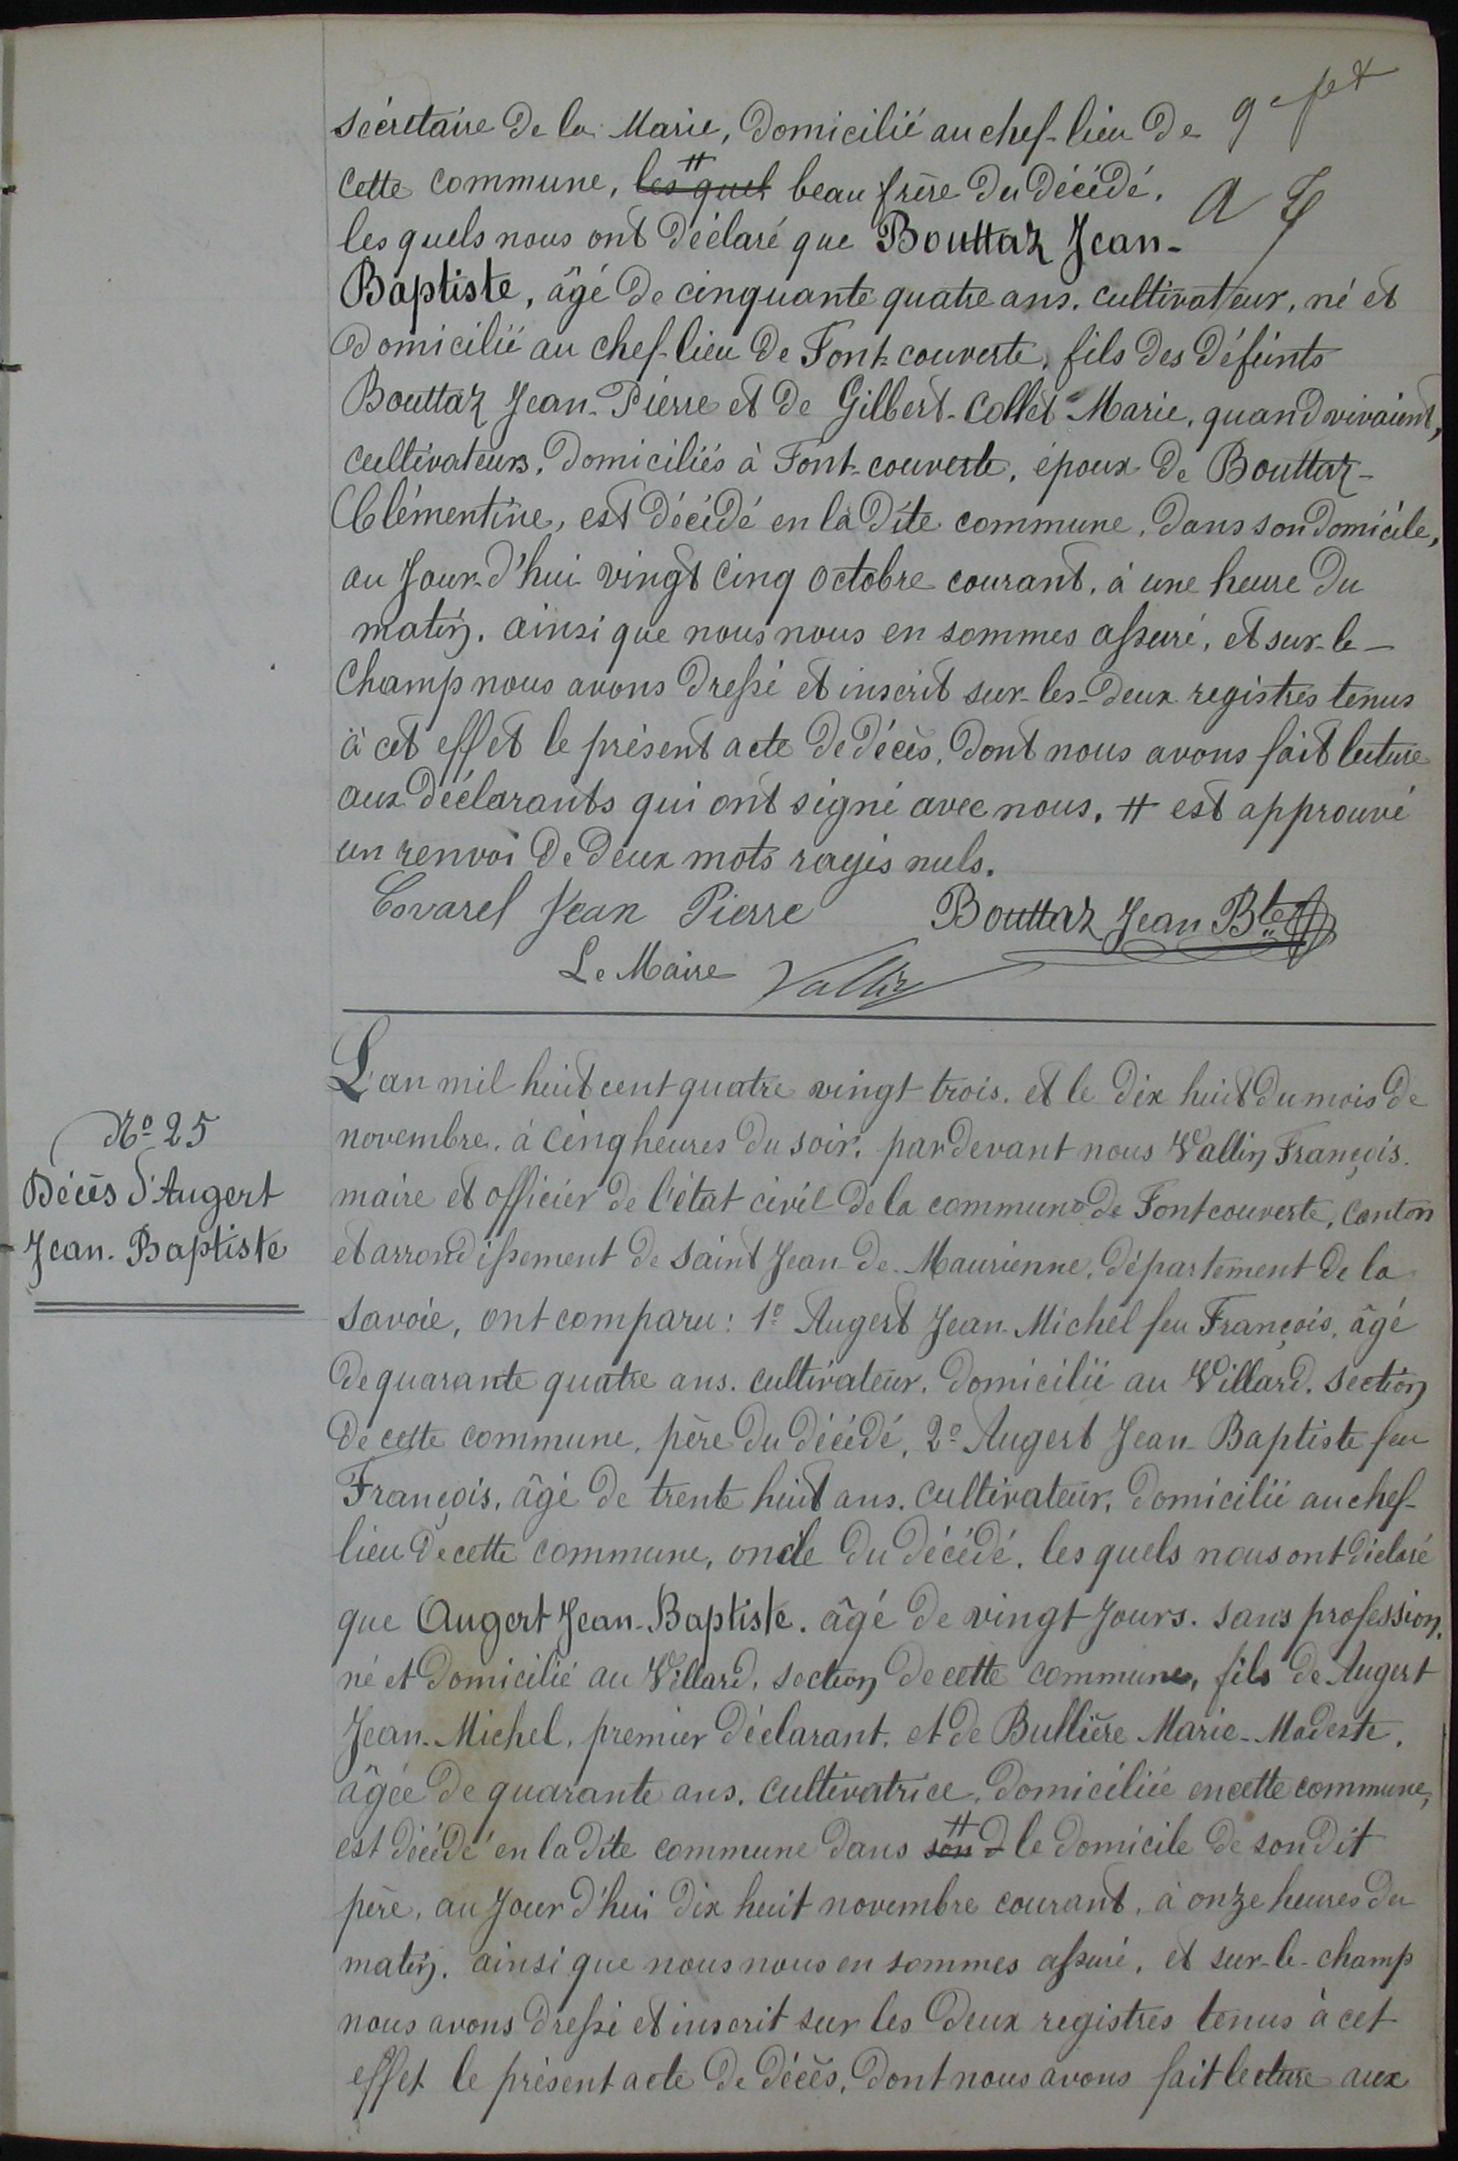 sécretaire de la Marie, domicilié au chef-lieu de
cette commune, les quel beau frère du décédé.
les quels nous ont déclaré que Bouttaz Jean-
Baptiste, âgé de cinquante quatre ans, cultivateur, né et
domicilié au chef-lieu de Font-couverte, fils des défunts
Bouttaz Jean-Pierre et de Gilbert-Collet Marie, quand vivaient,
cultivateurs, domiciliés à Font-couverte, époux de Bouttaz-
Clémentine, est décédé en la dite commune, dans son domicile,
au jour-d'hui vingt cinq octobre courant, à une heure du
matin, ainsi que nous nous en sommes assuré, et sur-le-
champ nous avons dressé et inscrit sur-les-deux registres tenus
à cet effet le présent acte de décès, dont nous avons fait lecture
aux déclarants qui ont signé avec nous. # est approuvé
un renvoi de deux mots rayés nuls.
Covarel Jean Pierre Bouttaz Jean Bte
Le Maire Vallin
L'an mil huit cent quatre vingt trois, et le dix huit du mois de
novembre, à cinq heures du soir, pardevant nous Vallin François,
maire et officier de l'état civil de la commune de Fontcouverte, canton
et arrondissement de Saint Jean-de-Maurienne, département de la
Nº 25
Décès d'Augert
Jean-Baptiste
Savoie, ont comparu: 1º Augert Jean-Michel feu François, âgé
de quarante quatre ans, cultivateur, domicilié au Villard, section
de cette commune, père du décédé, 2º Augert Jean-Baptiste feu
François, âgé de trente huit ans, cultivateur, domicilié au chef-
lieu de cette commune, oncle du décédé, les quels nous ont déclaré
que Augert Jean-Baptiste, âgé de vingt jours, sans profession,
né et domicilié au Villard, section de cette commune, fils de Augert
Jean-Michel, premier déclarant, et de Bullière Marie-Modeste,
âgée de quarante ans, cultivatrice, domiciliée en cette commune,
est décédé en la dite commune dans son d # le domicile de son dit
père, au jour d'hui dix huit novembre courant, à onze heures du
matin, ainsi que nous nous en sommes assuré, et sur-le-champ
nous avons dressé et inscrit sur les deux registres tenus à cet
effet le présent acte de décès, dont nous avons fait lecture aux